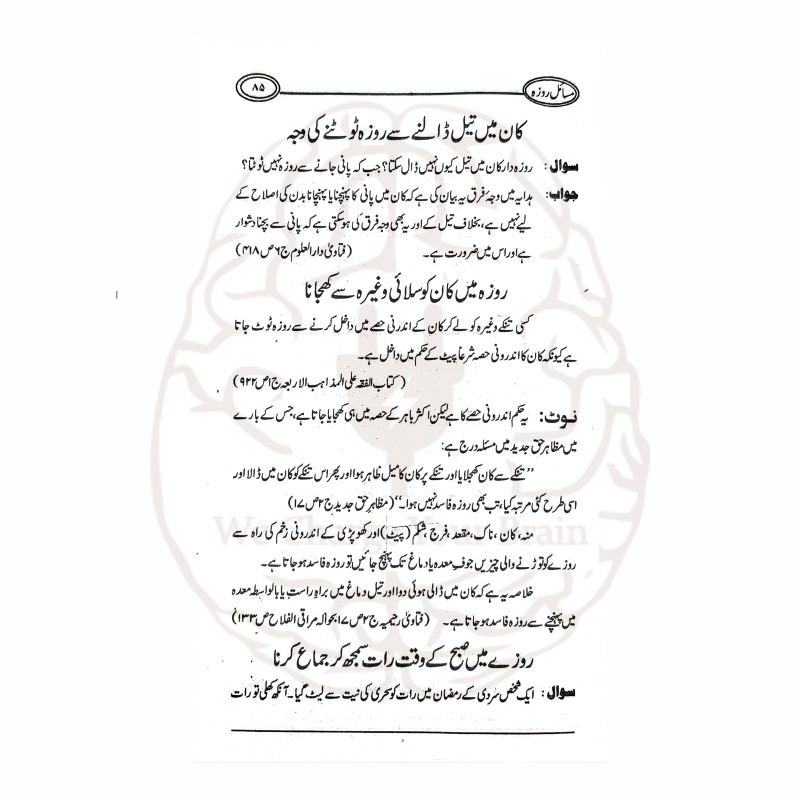 مسائل روزہ
۸۵
کان میں تیل ڈالنے سے روزہ ٹوٹنے کی وجہ
سوال: روزہ دار کان میں تیل کیوں نہیں ڈال سکتا؟ جب کہ پانی جانے سے روزہ نہیں ٹوٹتا؟
جواب: ہدایہ میں وجۂ فرق یہ بیان کی ہے کہ کان میں پانی کا پہنچنا یا پہنچانا بدن کی اصلاح کے
لیے نہیں ہے، بخلاف تیل کے اور یہ بھی وجہ فرق کی ہو سکتی ہے کہ پانی سے بچنا دشوار
ہے اور اس میں ضرورت ہے۔ (فتاویٰ دارالعلوم ج۶ ص ۴۱۸)
روزہ میں کان کو سلائی وغیرہ سے کھجانا
کسی تنکے وغیرہ کو لے کر کان کے اندرونی حصے میں داخل کرنے سے روزہ ٹوٹ جاتا
ہے کیونکہ کان کا اندرونی حصہ شرعاً پیٹ کے حکم میں داخل ہے۔
(کتاب الفقہ علی المذاہب الاربعہ ج۱ ص ۹۲۲)
نوٹ: یہ حکم اندرونی حصے کا ہے لیکن اکثر باہر کے حصہ میں ہی کھجایا جاتا ہے، جس کے بارے
میں مظاہر حق جدید میں مسئلہ درج ہے:
’’تنکے سے کان کھجلایا اور تنکے پر کان کا میل ظاہر ہوا اور پھر اس تنکے کو کان میں ڈالا اور
اسی طرح کئی مرتبہ کیا، تب بھی روزہ فاسد نہیں ہوا۔‘‘ (مظاہر حق جدید ج۲ ص ۱۷)
منہ، کان، ناک، مقعد، فرج، شکم (پیٹ) اور کھوپڑی کے اندرونی زخم کی راہ سے
روزے کو توڑنے والی چیزیں جوفِ معدہ یا دماغ تک پہنچ جائیں تو روزہ فاسد ہو جاتا ہے۔
خلاصہ یہ ہے کہ کان میں ڈالی ہوئی دوا اور تیل دماغ میں براہِ راست یا بالواسطہ معدہ
میں پہنچنے سے روزہ فاسد ہو جاتا ہے۔ (فتاویٰ رحیمیہ ج۲ ص ۱۷ بحوالہ مراقی الفلاح ص ۱۳۳)
روزے میں صبح کے وقت رات سمجھ کر جماع کرنا
سوال: ایک شخص سردی کے رمضان میں رات کو سحری کی نیت سے لیٹ گیا۔ آنکھ کھلی تو رات